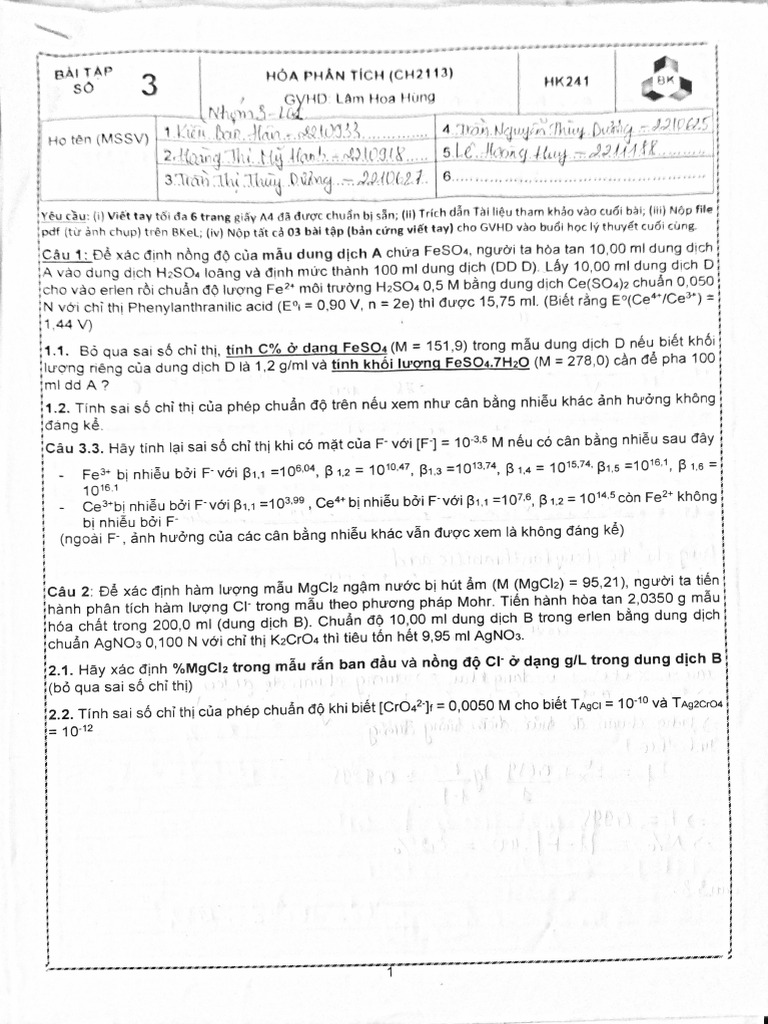 BÀI TẬP
SỐ
3
HÓA PHÂN TÍCH (CH2113)
GVHD: Lâm Hoa Hùng
HK241
BK
Nhóm 9 - L02
Họ tên (MSSV)
1. Kiều Bảo Hân - 2210933
4. Trần Nguyễn Thùy Dương - 2210625
2. Hoàng Thị Mỹ Hạnh - 2210918
5. Lê Hoàng Huy - 2211188
3. Trần Thị Thùy Dương - 2210627
6.
Yêu cầu: (i) Viết tay tối đa 6 trang giấy A4 đã được chuẩn bị sẵn; (ii) Trích dẫn Tài liệu tham khảo vào cuối bài; (iii) Nộp file
pdf (từ ảnh chụp) trên BKeL; (iv) Nộp tất cả 03 bài tập (bản cứng viết tay) cho GVHD vào buổi học lý thuyết cuối cùng.
Câu 1: Để xác định nồng độ của mẫu dung dịch A chứa FeSO₄, người ta hòa tan 10,00 ml dung dịch
A vào dung dịch H₂SO₄ loãng và định mức thành 100 ml dung dịch (DD D). Lấy 10,00 ml dung dịch D
cho vào erlen rồi chuẩn độ lượng Fe²⁺ môi trường H₂SO₄ 0,5 M bằng dung dịch Ce(SO₄)₂ chuẩn 0,050
N với chỉ thị Phenylanthranilic acid (E⁰ᵢ = 0,90 V, n = 2e) thì được 15,75 ml. (Biết rằng E⁰(Ce⁴⁺/Ce³⁺) =
1,44 V)
1.1. Bỏ qua sai số chỉ thị, tính C% ở dạng FeSO₄ (M = 151,9) trong mẫu dung dịch D nếu biết khối
lượng riêng của dung dịch D là 1,2 g/ml và tính khối lượng FeSO₄.7H₂O (M = 278,0) cần để pha 100
ml dd A ?
1.2. Tính sai số chỉ thị của phép chuẩn độ trên nếu xem như cân bằng nhiễu khác ảnh hưởng không
đáng kể.
Câu 3.3. Hãy tính lại sai số chỉ thị khi có mặt của F⁻ với [F⁻] = 10⁻³·⁵ M nếu có cân bằng nhiễu sau đây
- Fe³⁺ bị nhiễu bởi F⁻ với β1,1 =10⁶,⁰⁴, β 1,2 = 10¹⁰,⁴⁷, β1,3 =10¹³,⁷⁴, β 1,4 = 10¹⁵,⁷⁴, β1,5 =10¹⁶,¹, β 1,6 =
10¹⁶,¹
- Ce³⁺bị nhiễu bởi F⁻ với β1,1 =10³,⁹⁹ , Ce⁴⁺ bị nhiễu bởi F⁻với β1,1 =10⁷,⁶, β 1,2 = 10¹⁴,⁵ còn Fe²⁺ không
bị nhiễu bởi F⁻
(ngoài F⁻ , ảnh hưởng của các cân bằng nhiễu khác vẫn được xem là không đáng kể)
Câu 2: Để xác định hàm lượng mẫu MgCl₂ ngậm nước bị hút ẩm (M (MgCl₂) = 95,21), người ta tiến
hành phân tích hàm lượng Cl⁻ trong mẫu theo phương pháp Mohr. Tiến hành hòa tan 2,0350 g mẫu
hóa chất trong 200,0 ml (dung dịch B). Chuẩn độ 10,00 ml dung dịch B trong erlen bằng dung dịch
chuẩn AgNO₃ 0,100 N với chỉ thị K₂CrO₄ thì tiêu tốn hết 9,95 ml AgNO₃.
2.1. Hãy xác định %MgCl₂ trong mẫu rắn ban đầu và nồng độ Cl⁻ ở dạng g/L trong dung dịch B
(bỏ qua sai số chỉ thị)
2.2. Tính sai số chỉ thị của phép chuẩn độ khi biết [CrO₄²⁻]f = 0,0050 M cho biết TAgCl = 10⁻¹⁰ và TAg2CrO4
= 10⁻¹²
1